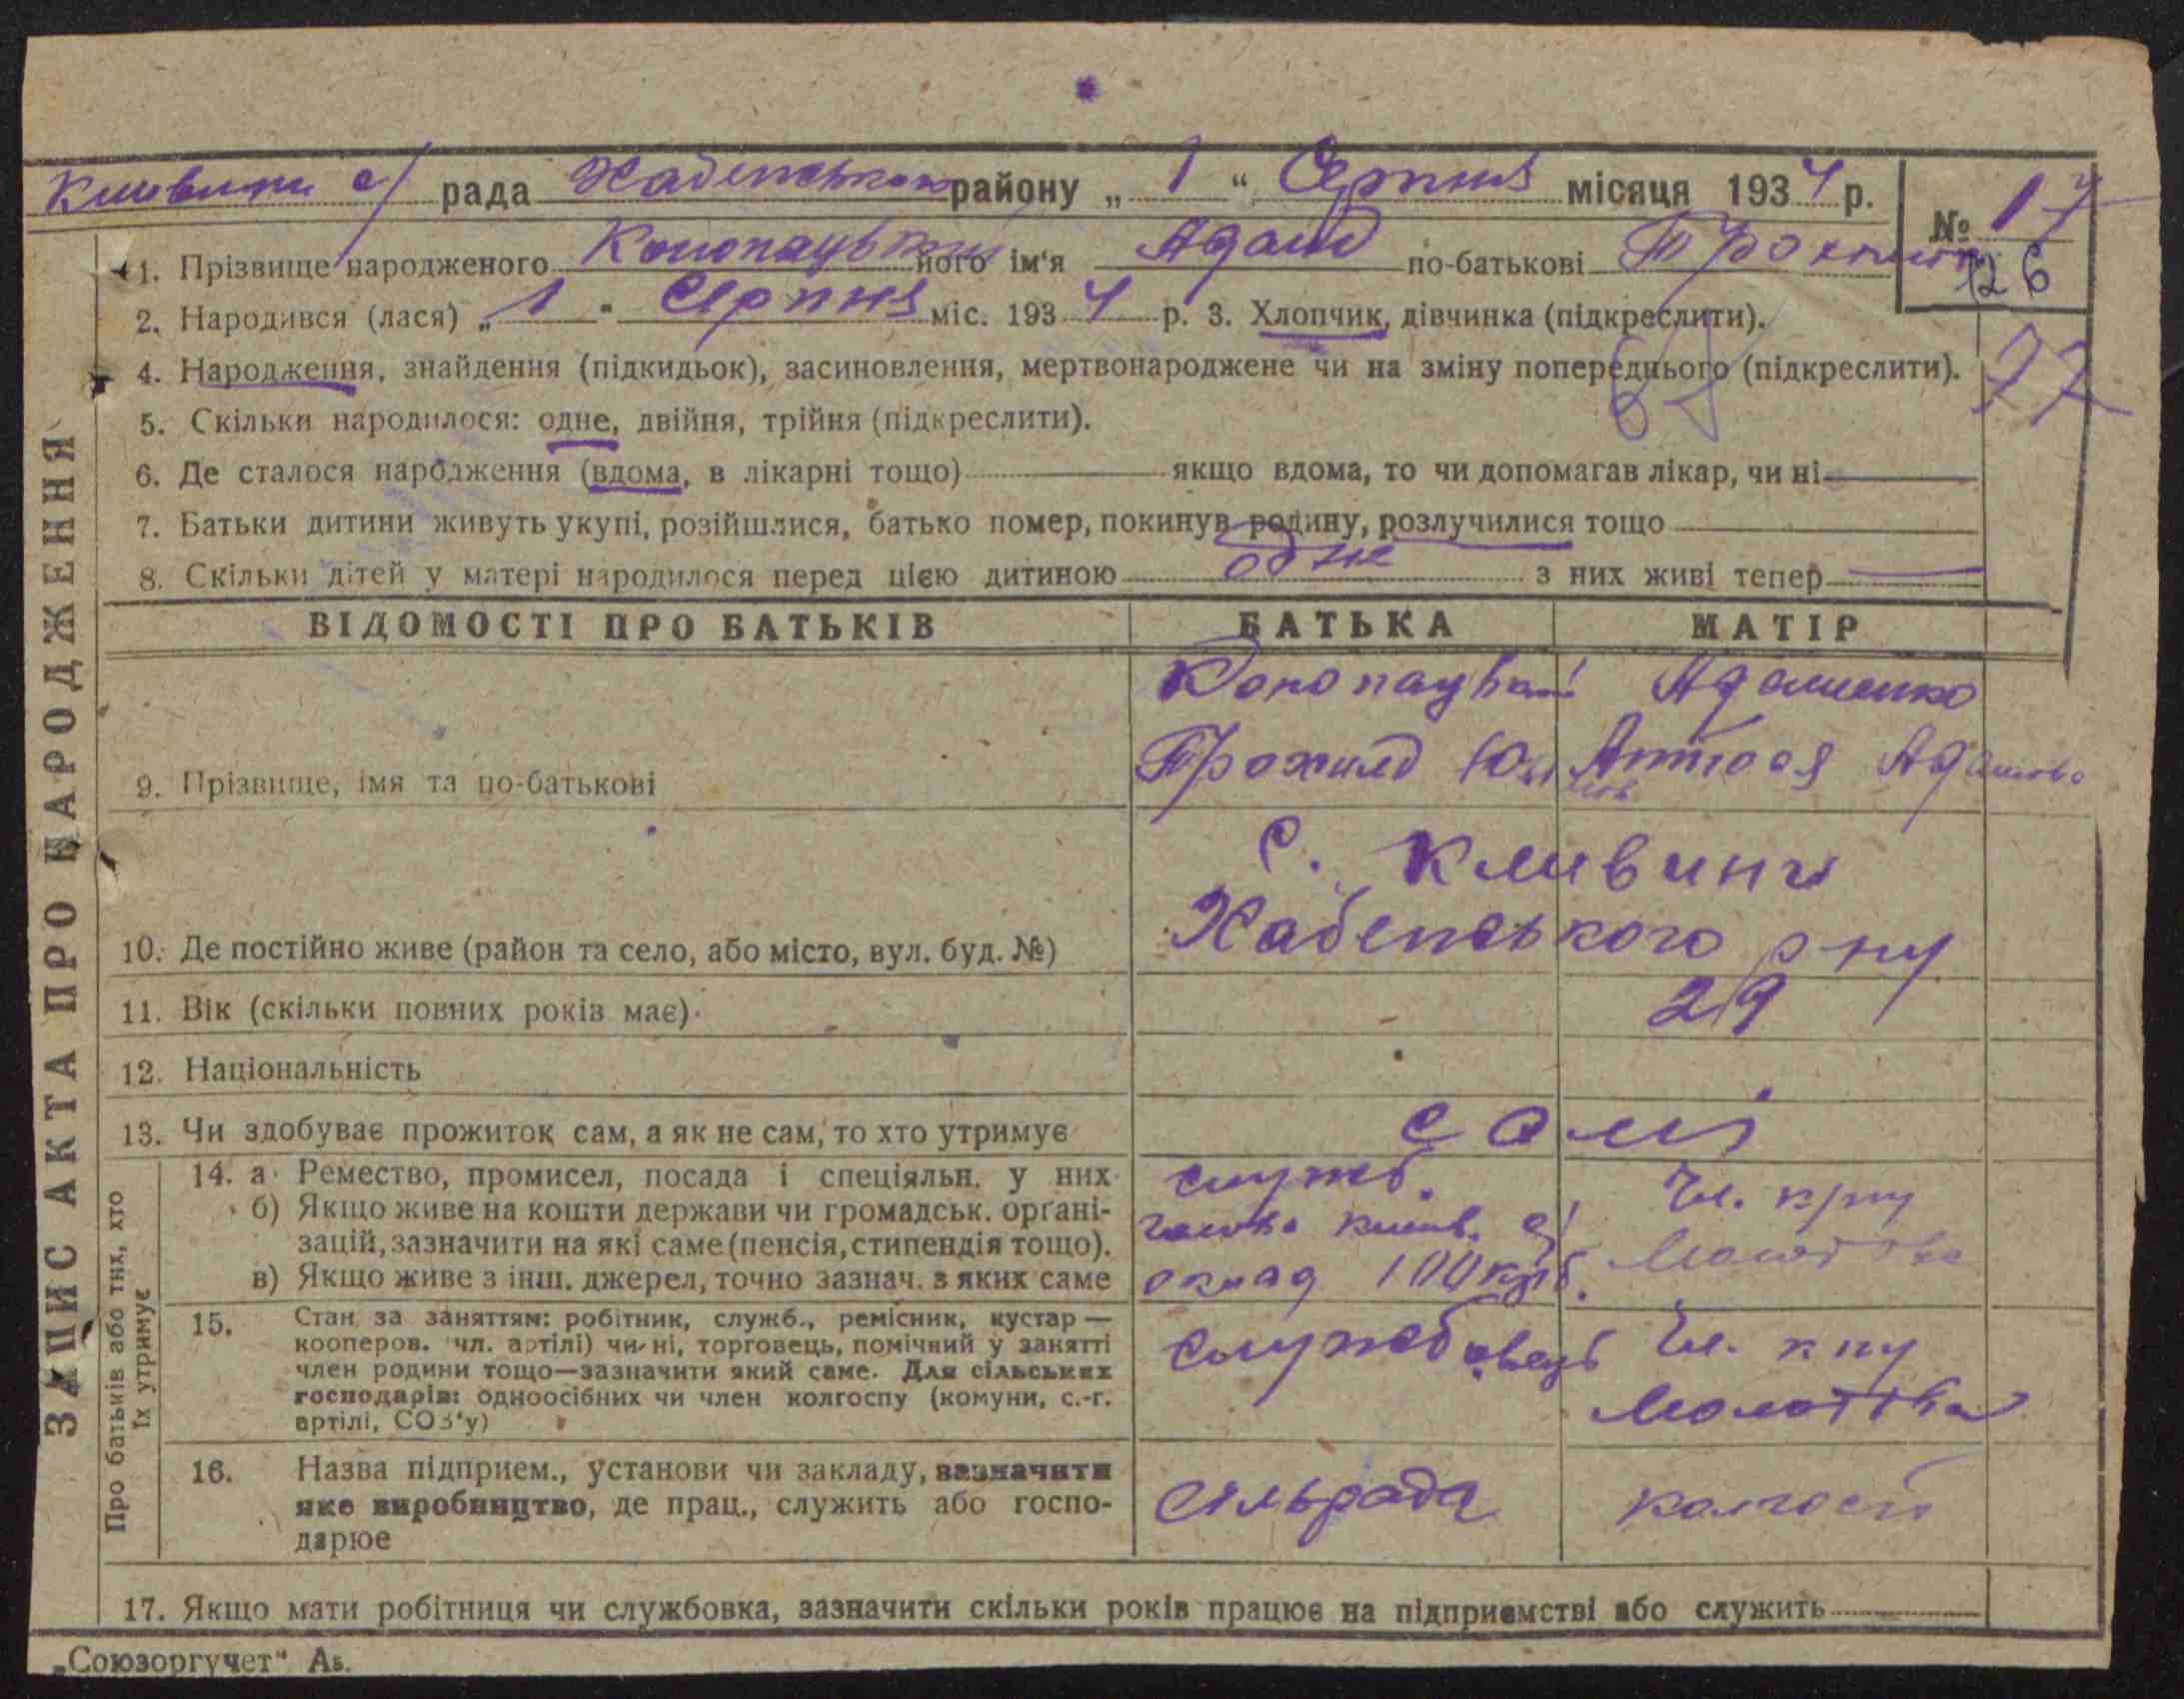 Кливини с/ рада Хабенського району „ 1 “ Серпня місяця 1934 р. № 17
1. Прізвище народженого Конопацький його ім'я Адам по-батькові Трохимов 126
2. Народився (лася) „ 1 " Серпня міс. 1934 р. 3. Хлопчик, дівчинка (підкреслити).
4. Народження, знайдення (підкидьок), засиновлення, мертвонароджене чи на зміну попереднього (підкреслити). 77
5. Скільки народилося: одне, двійня, трійня (підкреслити).
6. Де сталося народження (вдома, в лікарні тощо) якщо вдома, то чи допомагав лікар, чи ні
7. Батьки дитини живуть укупі, розійшлися, батько помер, покинув родину, розлучилися тощо
8. Скільки дітей у матері народилося перед цією дитиною одне з них живі тепер —
ВІДОМОСТІ ПРО БАТЬКІВ БАТЬКА МАТІР
Конопацький Адаменко
9. Прізвище, імя та по-батькові Трохим Адамовна
с. Кливини
10. Де постійно живе (район та село, або місто, вул. буд. №) Хабенського р-ну
11. Вік (скільки повних років має) 29
12. Національність
13. Чи здобуває прожиток сам, а як не сам, то хто утримує самі
14. а Ремество, промисел, посада і спеціяльн. у них служб. Чл. к/гпу
б) Якщо живе на кошти держави чи громадськ. орґані-
зацій, зазначити на які саме (пенсія, стипендія тощо). голова клив. с/ Молотова
в) Якщо живе з інш. джерел, точно зазнач. з яких саме оклад 100 крб.
15. Стан за заняттям: робітник, служб., ремісник, кустар —
кооперов. чл. артілі) чи ні, торговець, помічний у занятті
член родини тощо—зазначити який саме. Для сільських
господарів: одноосібних чи член колгоспу (комуни, с.-г.
артілі, СОЗ'у) службовець Чл. кгпу Молотова
16. Назва підприєм., установи чи закладу, зазначити
яке виробництво, де прац., служить або госпо-
дарює сільрада колгосп
17. Якщо мати робітниця чи службовка, зазначити скільки років працює на підприємстві або служить
„Союзоргучет“
ЗАПИС АКТА ПРО НАРОДЖЕННЯ
Про батьків або тих, хто
їх утримує